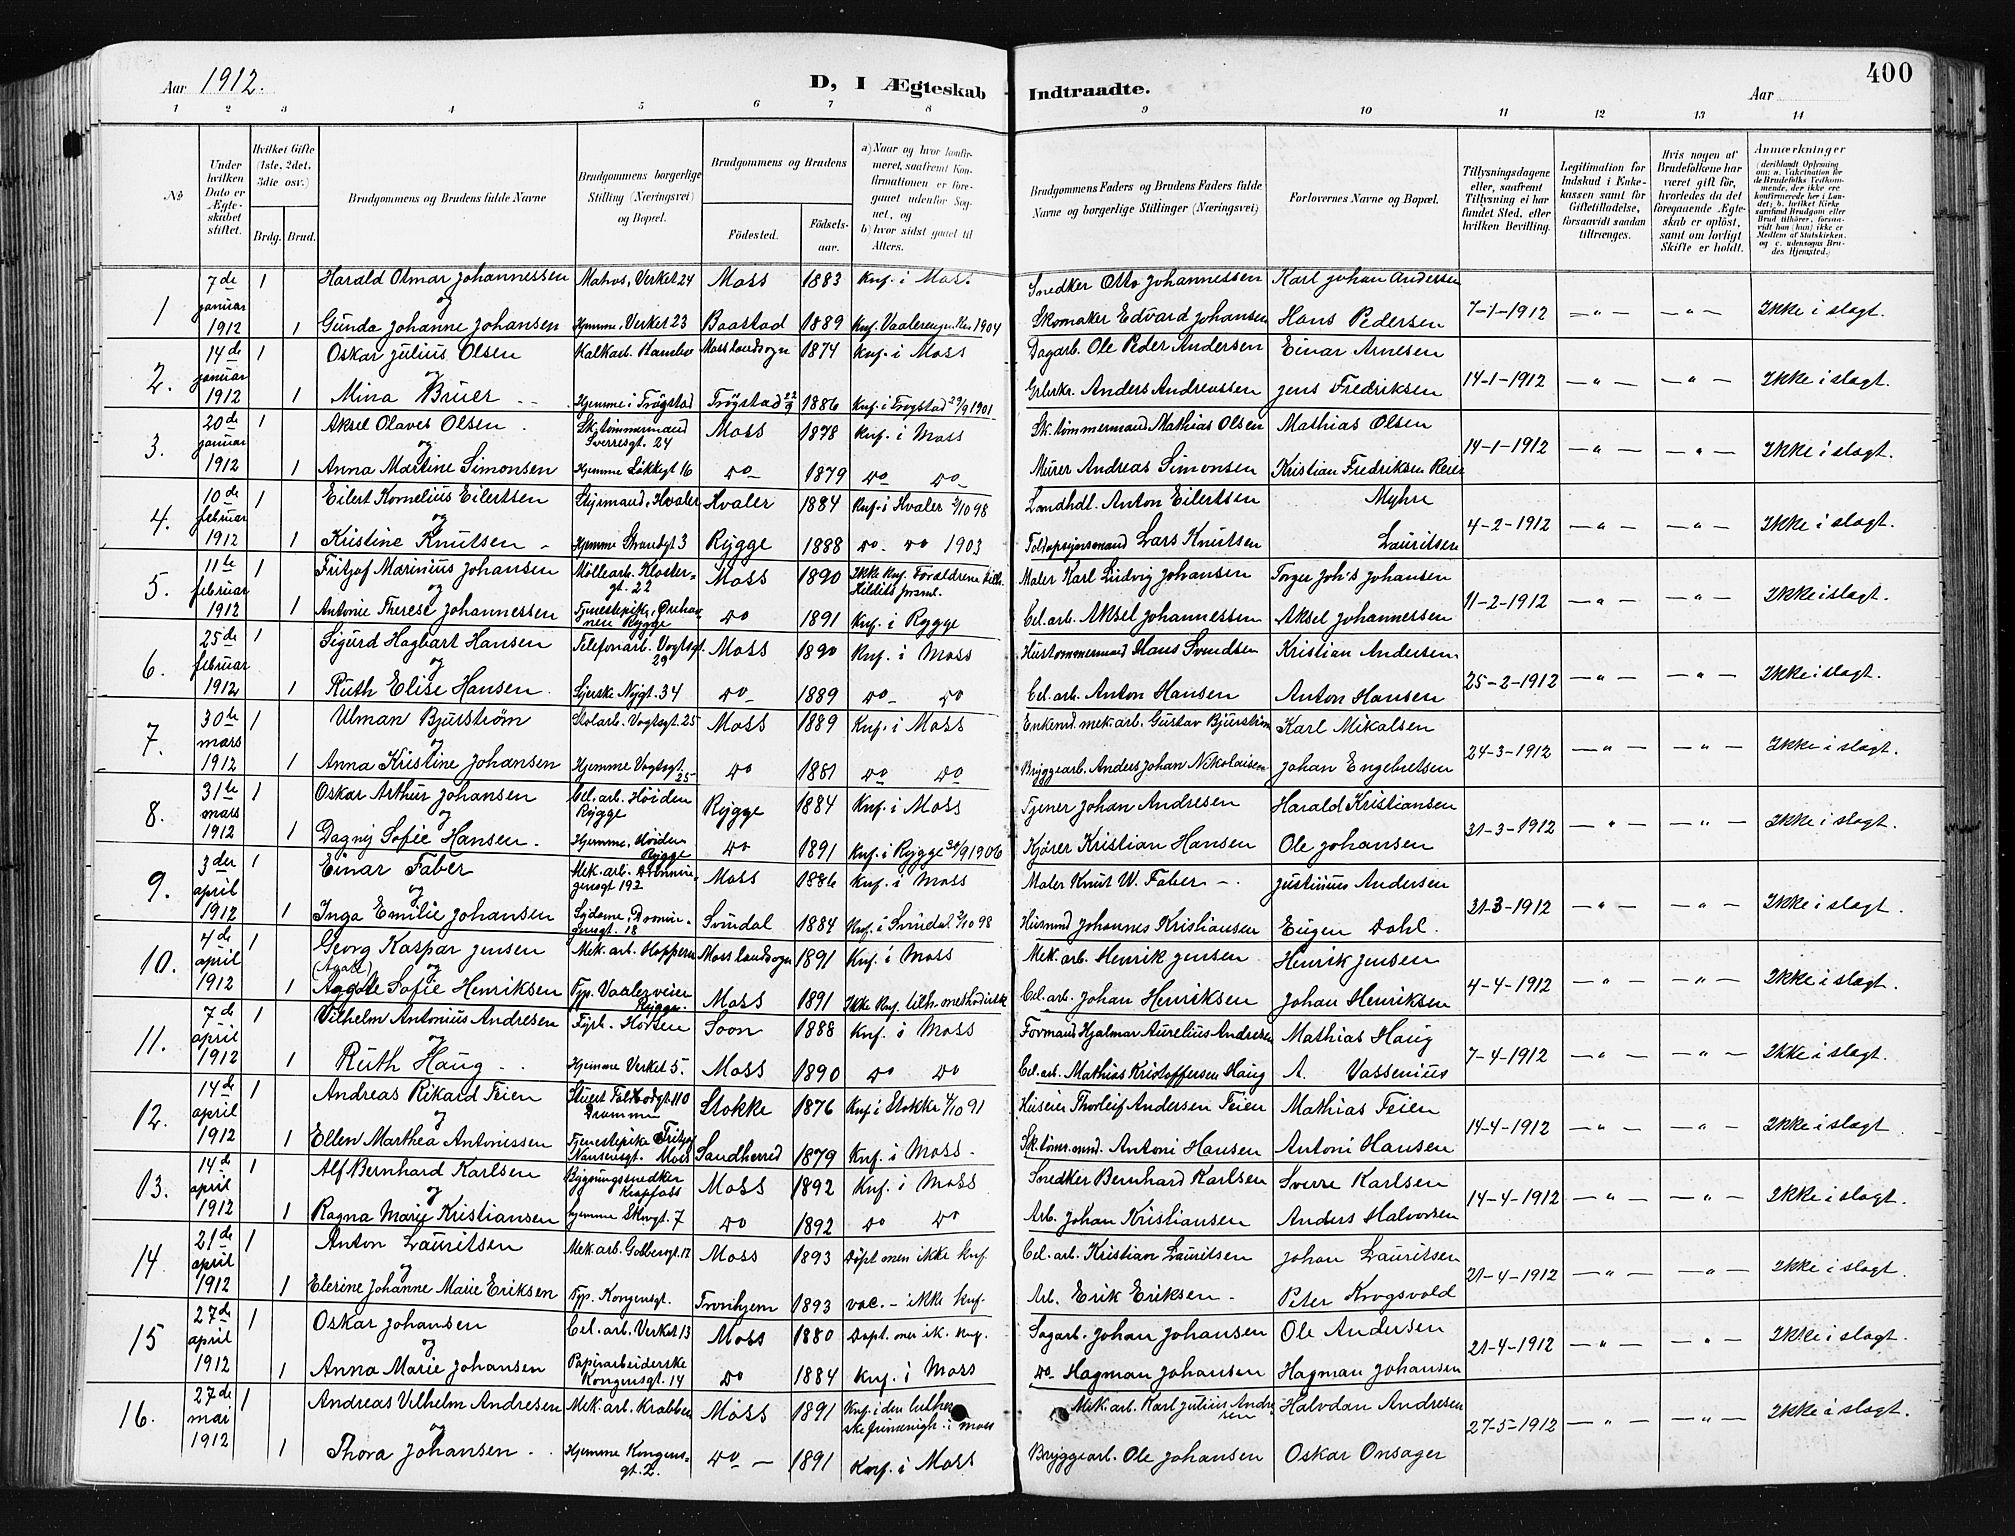 400
Aar 1912. D, I Ægteskab Indtraadte. Aar
1 2 3 4 5 6 7 8 9 10 11 12 13 14
No
Under hvilken Dato er Ægteskabet stiftet.
Hvilket Gifte (1ste, 2det, 3dte osv.)
Brdg. Brud.
Brudgommens og Brudens fulde Navne
Brudgommens borgerlige Stilling (Næringsvei) og Bopæl.
Brudgommens og Brudens
Fødested. Fødselsaar.
a) Naar og hvor konfirmeret, saafremt Konfirmationen er foregaaet udenfor Sognet, og
b) hvor sidst gaaet til Alters.
Brudgommens Faders og Brudens Faders fulde Navne og borgerlige Stillinger (Næringsvei)
Forlovernes Navne og Bopæl.
Tillysningsdagene eller, saafremt Tillysning ei har fundet Sted, efter hvilken Bevilling.
Legitimation for Indskud i Enkekassen samt for Giftetilladelse, forsaavidt saadan tiltrænges.
Hvis nogen af Brudefolkene har været gift før, hvorledes da det foregaaende Ægteskab er opløst, samt om lovligt Skifte er holdt.
Anmærkninger (deriblandt Oplysning om: a. Vakcination for de Brudefolks Vedkommende, der ikke ere konfirmerede her i Landet; b. hvilket Kirkesamfund Brudgom eller Brud tilhører, forsaavidt han (hun) ikke er Medlem af Statskirken, og c. udensogns Brudes Hjemsted.)
1 7de januar 1912 1 Harald Otmar Johannessen Matros, Verket 24 Moss 1883 Knf. i Moss. Snedker Otto Johannessen Karl Johan Andersen 7-1-1912 — " — — " — Ikke i slægt.
og
1 Gunda Johanne Johansen Hjemme, Verket 23 Baastad 1889 Knf. Vaalereng 1904 Skomaker Edvard Johansen Hans Pedersen
2. 14de januar 1912 1 Oskar Julius Olsen Kalkarb. Kambo Moss landsogn 1874 Knf. i Moss Dagarb. Ole Peder Andersen Einar Arnesen 14-1-1912 — " — — " — Ikke i slægt.
og
1 Mina Bruer Hjemme i Trøgstad Trøgstad 1886 Knf. i Trøgstad 29/9 1901 Anders Andreassen Jens Fredriksen
3. 20de januar 1912 1 Aksel Olaves Olsen Sk.tømmermand Sverresgt. 24 Moss 1878 Knf. i Moss Sk. tømmermand Mathias Olsen Mathias Olsen 14-1-1912 — " — — " — Ikke i slægt.
og
1 Anna Martine Simonsen Hjemme Løkkegt 16 do 1879 do do Murer Andreas Simonsen Kristian Fredriksen
4. 10de februar 1912 1 Eilert Kornelius Eilertsen Styrmand, Hvaler Hvaler 1884 Knf. i Hvaler 2/10 98 Landhdl. Anton Eilertsen Myhre 4-2-1912 — " — — " — Ikke i slægt.
og
1 Kristine Knutsen Hjemme Strandgt 3 Rygge 1888 do do 1903 Toldopsynsmand Lars Knutsen Lauritsen
5. 11te februar 1912 1 Fritjof Marinius Johansen Møllearb. Klostergt. 22 Moss 1890 Ikke Knf. Forældrene tilh. Maler Karl Ludvig Johansen Torger Joh's Johansen 11-2-1912 — " — — " — Ikke i slægt.
og
1 Antonie Therese Johannessen Tjenestepike, Rygge do 1891 Knf. i Rygge Cel. arb. Aksel Johannessen Aksel Johannessen
6. 25de februar 1912 1 Sigurd Hagbart Hansen Telefonarb. Vogtsgt. 29 Moss 1890 Knf. i Moss Hustømmermand Hans Svendsen Kristian Andersen 25-2-1912 — " — — " — Ikke i slægt.
og
1 Ruth Elise Hansen Syerske Nygt. 34 do 1889 do do Cel. arb. Anton Hansen Anton Hansen
7. 30te mars 1912 1 Ulman Bjurstrøm Stolarb. Vogtsgt. 25 Moss 1889 Knf. i Moss Enkemd mek. arb. Gustav Bjurstrøm Karl Mikalsen 24-3-1912 — " — — " — Ikke i slægt.
og
1 Anna Kristine Johansen Hjemme Vogtsgt. 25 do 1881 do do Bryggearb. Anders Johan Nikolaisen Johan Engebretsen
8. 31te mars 1912 1 Oskar Arthur Johansen Cel. arb. Høiden Rygge Rygge 1884 Knf. i Moss Tjener Johan Andresen Harald Kristiansen 31-3-1912 — " — — " — Ikke i slægt.
og
1 Dagny Sofie Hansen Hjemme, Høiden Rygge do 1891 Knf. i Rygge 30/9 1906 Kjører Kristian Hansen Ole Johansen
9. 3die april 1912 1 Einar Faber Mek. arb. Dronningensgt 192 Moss 1886 Knf. i Moss Maler Knut W. Faber Justinus Andersen 31-3-1912 — " — — " — Ikke i slægt.
og
1 Inga Emilie Johansen Sydame, Dronningensgt. 18 Svindal 1884 Knf. i Svindal 2/10 98 Husmnd Johannes Kristiansen Eugen Dahl.
10. 4de april 1912 1 Georg Kaspar Jensen Mek. arb. Hoppern Moss landsogn 1891 Knf. i Moss Mek. arb. Henrik Jensen Henrik Jensen 4-4-1912 — " — — " — Ikke i slægt.
(Agate) og
1 Agate Sofie Henriksen Typ. Vaalerveien Rygge Moss 1891 Ikke Knf. tilh. methodistk. Cel. arb. Johan Henriksen Johan Henriksen
11. 7de april 1912 1 Vilhelm Antonius Andresen Fyrb. Horten Soon 1888 Knf. i Moss Formand Hjalmar Aurelius Andresen Mathias Haug 7-4-1912 — " — — " — Ikke i slægt.
og
1 Ruth Haug Hjemme Verket 5. Moss 1890 do do Cel. arb. Mathias Kristoffersen Haug A. Vassenius
12. 14de april 1912 1 Andreas Rikard Feien Stuert 110 Drammen Stokke 1876 Knf i Stokke 4/10 91 Huseier Thorleif Andersen Feien Mathias Feien 14-4-1912 — " — — " — Ikke i slægt.
og
1 Ellen Marthea Antonissen Tjenestepike Fritjof Nansensgt. Moss Sandherred 1879 Knf. i Moss. Sk. tømr. mnd. Antoni Hansen Antoni Hansen
13. 14de april 1912 1 Alf Bernhard Karlsen Bygningssnedker Krapfoss Moss 1892 Knf. i Moss Snedker Bernhard Karlsen Sverre Karlsen 14-4-1912 — " — — " — Ikke i slægt.
og
1 Ragna Marie Kristiansen Hjemme Skovgt. 7 do 1892 do do Arb. Johan Kristiansen Anders Halvorsen
14. 21de april 1912 1 Anton Lauritsen Mek. arb. Gobbersgt. 12 Moss 1893 Døpt men ikke knf. Cel. arb. Kristian Lauritsen Johan Lauritsen 21-4-1912 — " — — " — Ikke i slægt.
og
1 Elerine Johanne Marie Eriksen Typ. Kongensgt. Tronhjem 1893 vac. - ikke knf. Arb. Erik Eriksen Peter Krogsvold
15 27de april 1912 1 Oskar Johansen Cel. arb. Verket 13 Moss 1880 Døpt. men ik. knf. Sagarb. Johan Johansen Ole Andersen 21-4-1912 — " — — " — Ikke i slægt.
og
1 Anna Marie Johansen Papirarbeiderske Kongensgt. 14 do 1884 Knf. i Moss do Hagman Johansen Hagman Johansen
16. 27de mai 1912 1 Andreas Vilhelm Andresen Mek. arb. Krabben Moss 1891 Knf. i den lutherske frimenigh. i Moss Mek. arb. Karl Julius Andresen Halvdan Andresen 27-5-1912 — " — — " — Ikke i slægt.
og
1 Thora Johansen Hjemme Kongensgt. 2. do 1891 Knf. i Moss Bryggearb. Ole Johansen Oskar Onsager